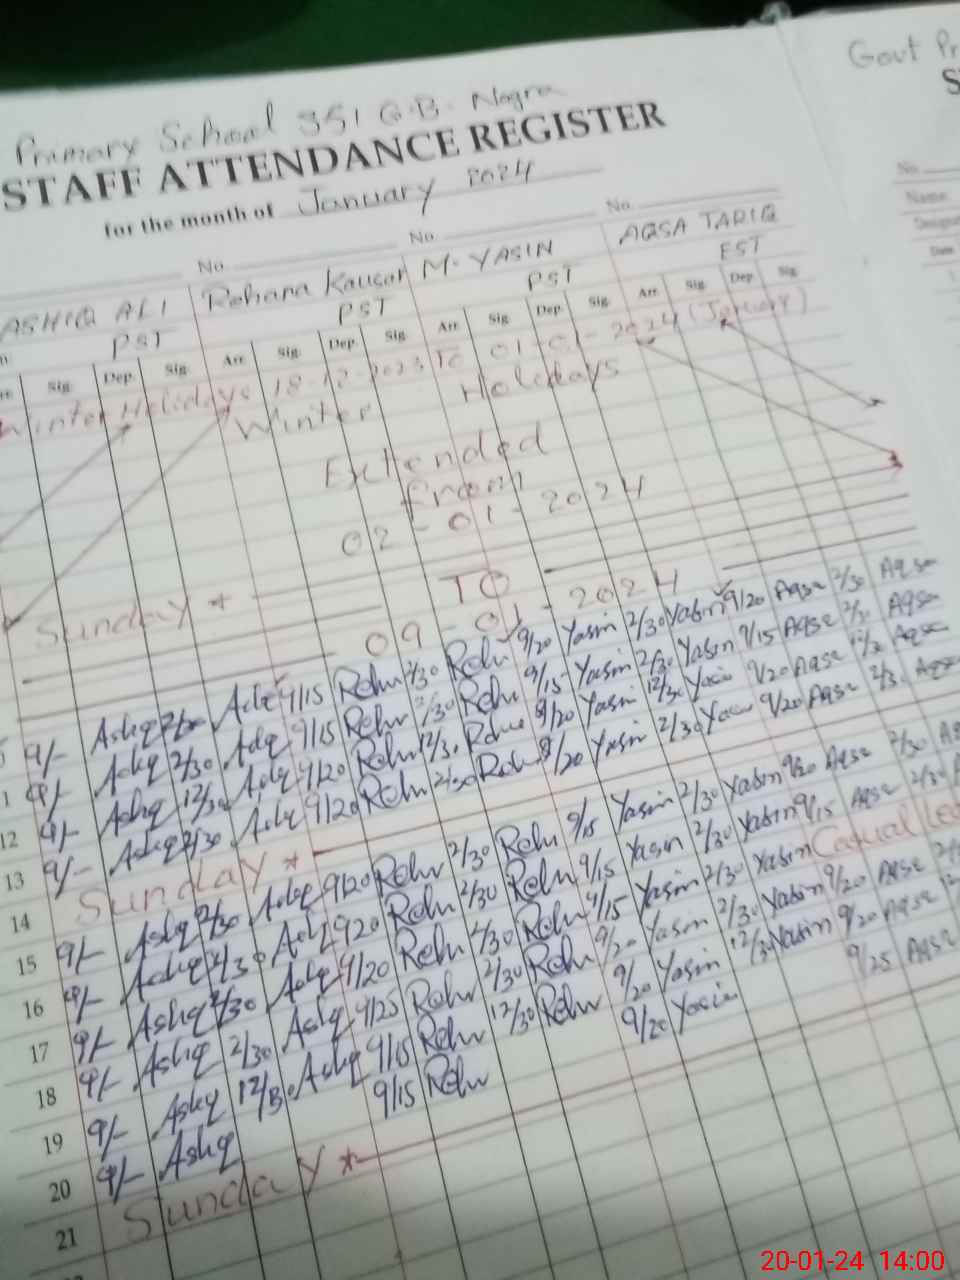 Govt Pr
Primary School 351 G.B. Nagra
STAFF ATTENDANCE REGISTER
for the month of January 2024
No. No. No. No.
ASHIQ ALI Rehana Kausar M. YASIN AQSA TARIQ
PST PST PST EST
Sig. Dep. Sig. Arr. Sig. Dep. Sig. Arr. Sig. Dep. Sig. Arr. Sig. Dep. Sig.
Winter Holidays 18-12-2023 TO 01-01-2024 (January)
Winter Holidays
Extended
from
02-01-2024
Sunday * TO
09-01-2024
9/- Ashq 2/30 Ashq 9/15 Rehn 2/30 Rehn 9/20 Yasin 2/30 Yasin 9/20 Aqsa 2/30 Aqsa
9/- Ashq 2/30 Ashq 9/15 Rehn 2/30 Rehn 9/15 Yasin 2/30 Yasin 9/15 Aqsa 2/30 Aqsa
12 9/- Ashq 12/30 Ashq 9/20 Rehn 12/30 Rehn 9/20 Yasin 12/30 Yasin 9/20 Aqsa 12/30 Aqsa
13 9/- Ashq 2/30 Ashq 9/20 Rehn 2/30 Rehn 9/20 Yasin 2/30 Yasin 9/20 Aqsa 2/30 Aqsa
14 Sunday *
15 9/- Ashq 2/30 Ashq 9/20 Rehn 2/30 Rehn 9/15 Yasin 2/30 Yasin 9/20 Aqsa 2/30
16 9/- Ashq 2/30 Ashq 9/20 Rehn 2/30 Rehn 9/15 Yasin 2/30 Yasin 9/15 Aqsa 2/30
17 9/- Ashq 2/30 Ashq 9/20 Rehn 2/30 Rehn 9/15 Yasin 2/30 Yasin Casual Lea
18 9/- Ashq 2/30 Ashq 9/25 Rehn 2/30 Rehn 9/20 Yasin 2/30 Yasin 9/20 Aqsa
19 9/- Ashq 12/30 Ashq 9/15 Rehn 12/30 Rehn 9/20 Yasin 12/30 Yasin 9/20 Aqsa
20 9/- Ashq 9/15 Rehn 9/20 Yasin 9/25 Aqsa
21 Sunday *
20-01-24 14:00